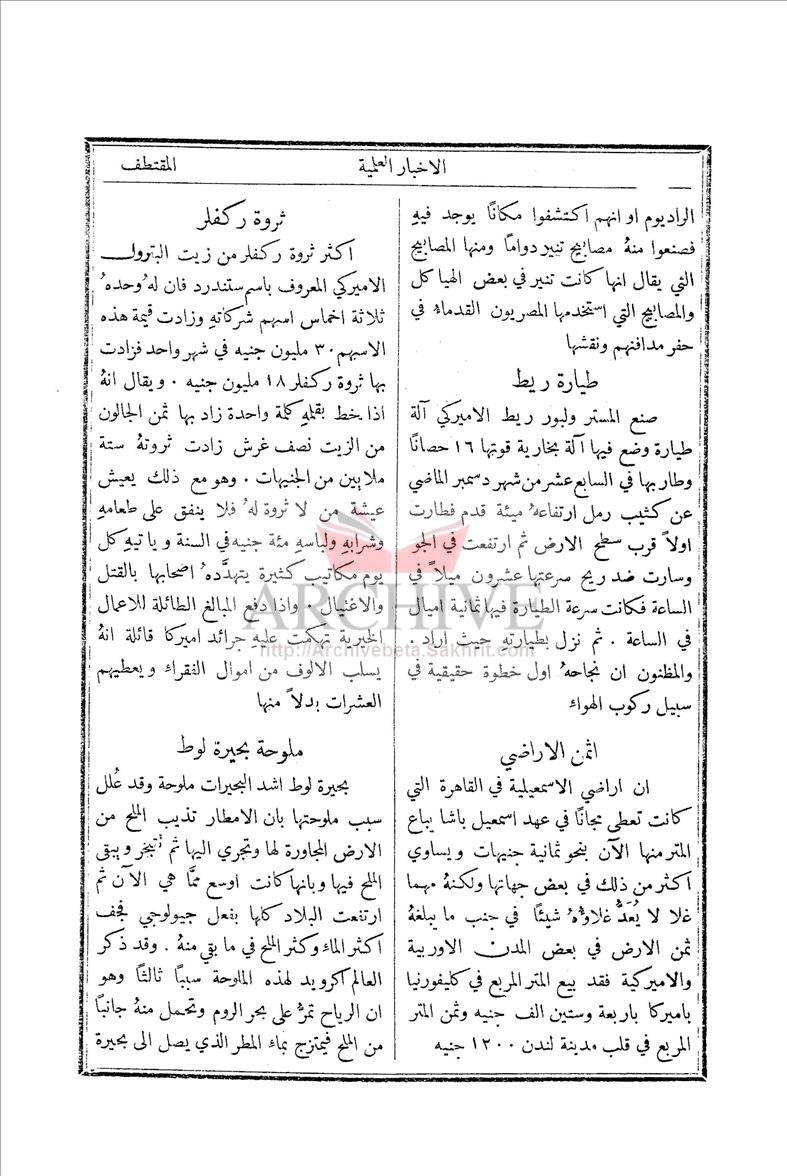 الاخبار العلمية
المقتطف
الراديوم او انهم اكتشفوا مكانًا يوجد فيهِ
فصنعوا منهُ مصابيح تنير دوامًا ومنها المصابيح
التي يقال انها كانت تنير في بعض الهياكل
والمصابيح التي استخدمها المصريون القدماء في
حفر مدافنهم ونقشها
طيارة ريط
صنع المستر ولبور ريط الاميركي آلة
طيارة وضع فيها آلة بخارية قوتها ١٦ حصانًا
وطار بها في السابع عشر من شهر دسمبر الماضي
عن كثيب رمل ارتفاعهُ ميئة قدم فطارت
اولاً قرب سطح الارض ثم ارتفعت في الجو
وسارت ضد ريح سرعتها عشرون ميلاً في
الساعة فكانت سرعة الطيارة فيها ثمانية اميال
في الساعة . ثم نزل بطيارتهِ حيث اراد .
والمظنون ان نجاحهُ اول خطوة حقيقية في
سبيل ركوب الهواء
اثمن الاراضي
ان اراضي الاسمعيلية في القاهرة التي
كانت تعطى مجانًا في عهد اسمعيل باشا يباع
المتر منها الآن بنحو ثمانية جنيهات ويساوي
اكثر من ذلك في بعض جهاتها ولكنهُ مهما
غلا لا يُعَدُّ غلاؤهُ شيئًا في جنب ما يبلغهُ
ثمن الارض في بعض المدن الاوربية
والاميركية فقد بيع المتر المربع في كليفورنيا
باميركا باربعة وستين الف جنيه وثمن المتر
المربع في قلب مدينة لندن ١٢٠٠ جنيه
ثروة ركفلر
اكثر ثروة ركفلر من زيت البترول
الاميركي المعروف باسم ستندرد فان لهُ وحدهُ
ثلاثة اخماس اسهم شركاتهِ وزادت قيمة هذه
الاسهم ٣٠ مليون جنيه في شهر واحد فزادت
بها ثروة ركفلر ١٨ مليون جنيه . ويقال انهُ
اذا خط بقلمهِ كلمة واحدة زاد بها ثمن الجالون
من الزيت نصف غرش زادت ثروتهُ ستة
ملايين من الجنيهات . وهو مع ذلك يعيش
عيشة من لا ثروة لهُ فلا ينفق على طعامهِ
وشرابهِ ولباسهِ مئة جنيه في السنة ويأتيهِ كل
يوم مكاتيب كثيرة يتهدَّدهُ اصحابها بالقتل
والاغتيال . واذا دفع المبالغ الطائلة للاعمال
الخيرية تهكمت عليهِ جرائد اميركا قائلة انهُ
يسلب الالوف من اموال الفقراء ويعطيهم
العشرات بدلاً منها
ملوحة بحيرة لوط
بحيرة لوط اشد البحيرات ملوحة وقد عُلل
سبب ملوحتها بان الامطار تذيب الملح من
الارض المجاورة لها وتجري اليها ثم تتبخر ويبقى
الملح فيها وبانها كانت اوسع ممَّا هي الآن ثم
ارتفعت البلاد كلها بفعل جيولوجي فجف
اكثر الماء وكثر الملح في ما بقي منهُ . وقد ذكر
العالم اكرويد لهذه الملوحة سببًا ثالثًا وهو
ان الرياح تمرُّ على بحر الروم وتحمل منهُ جانبًا
من الملح فيمتزج بماء المطر الذي يصل الى بحيرة
ARCHIVE
http://Archivebeta.Sakhrit.com